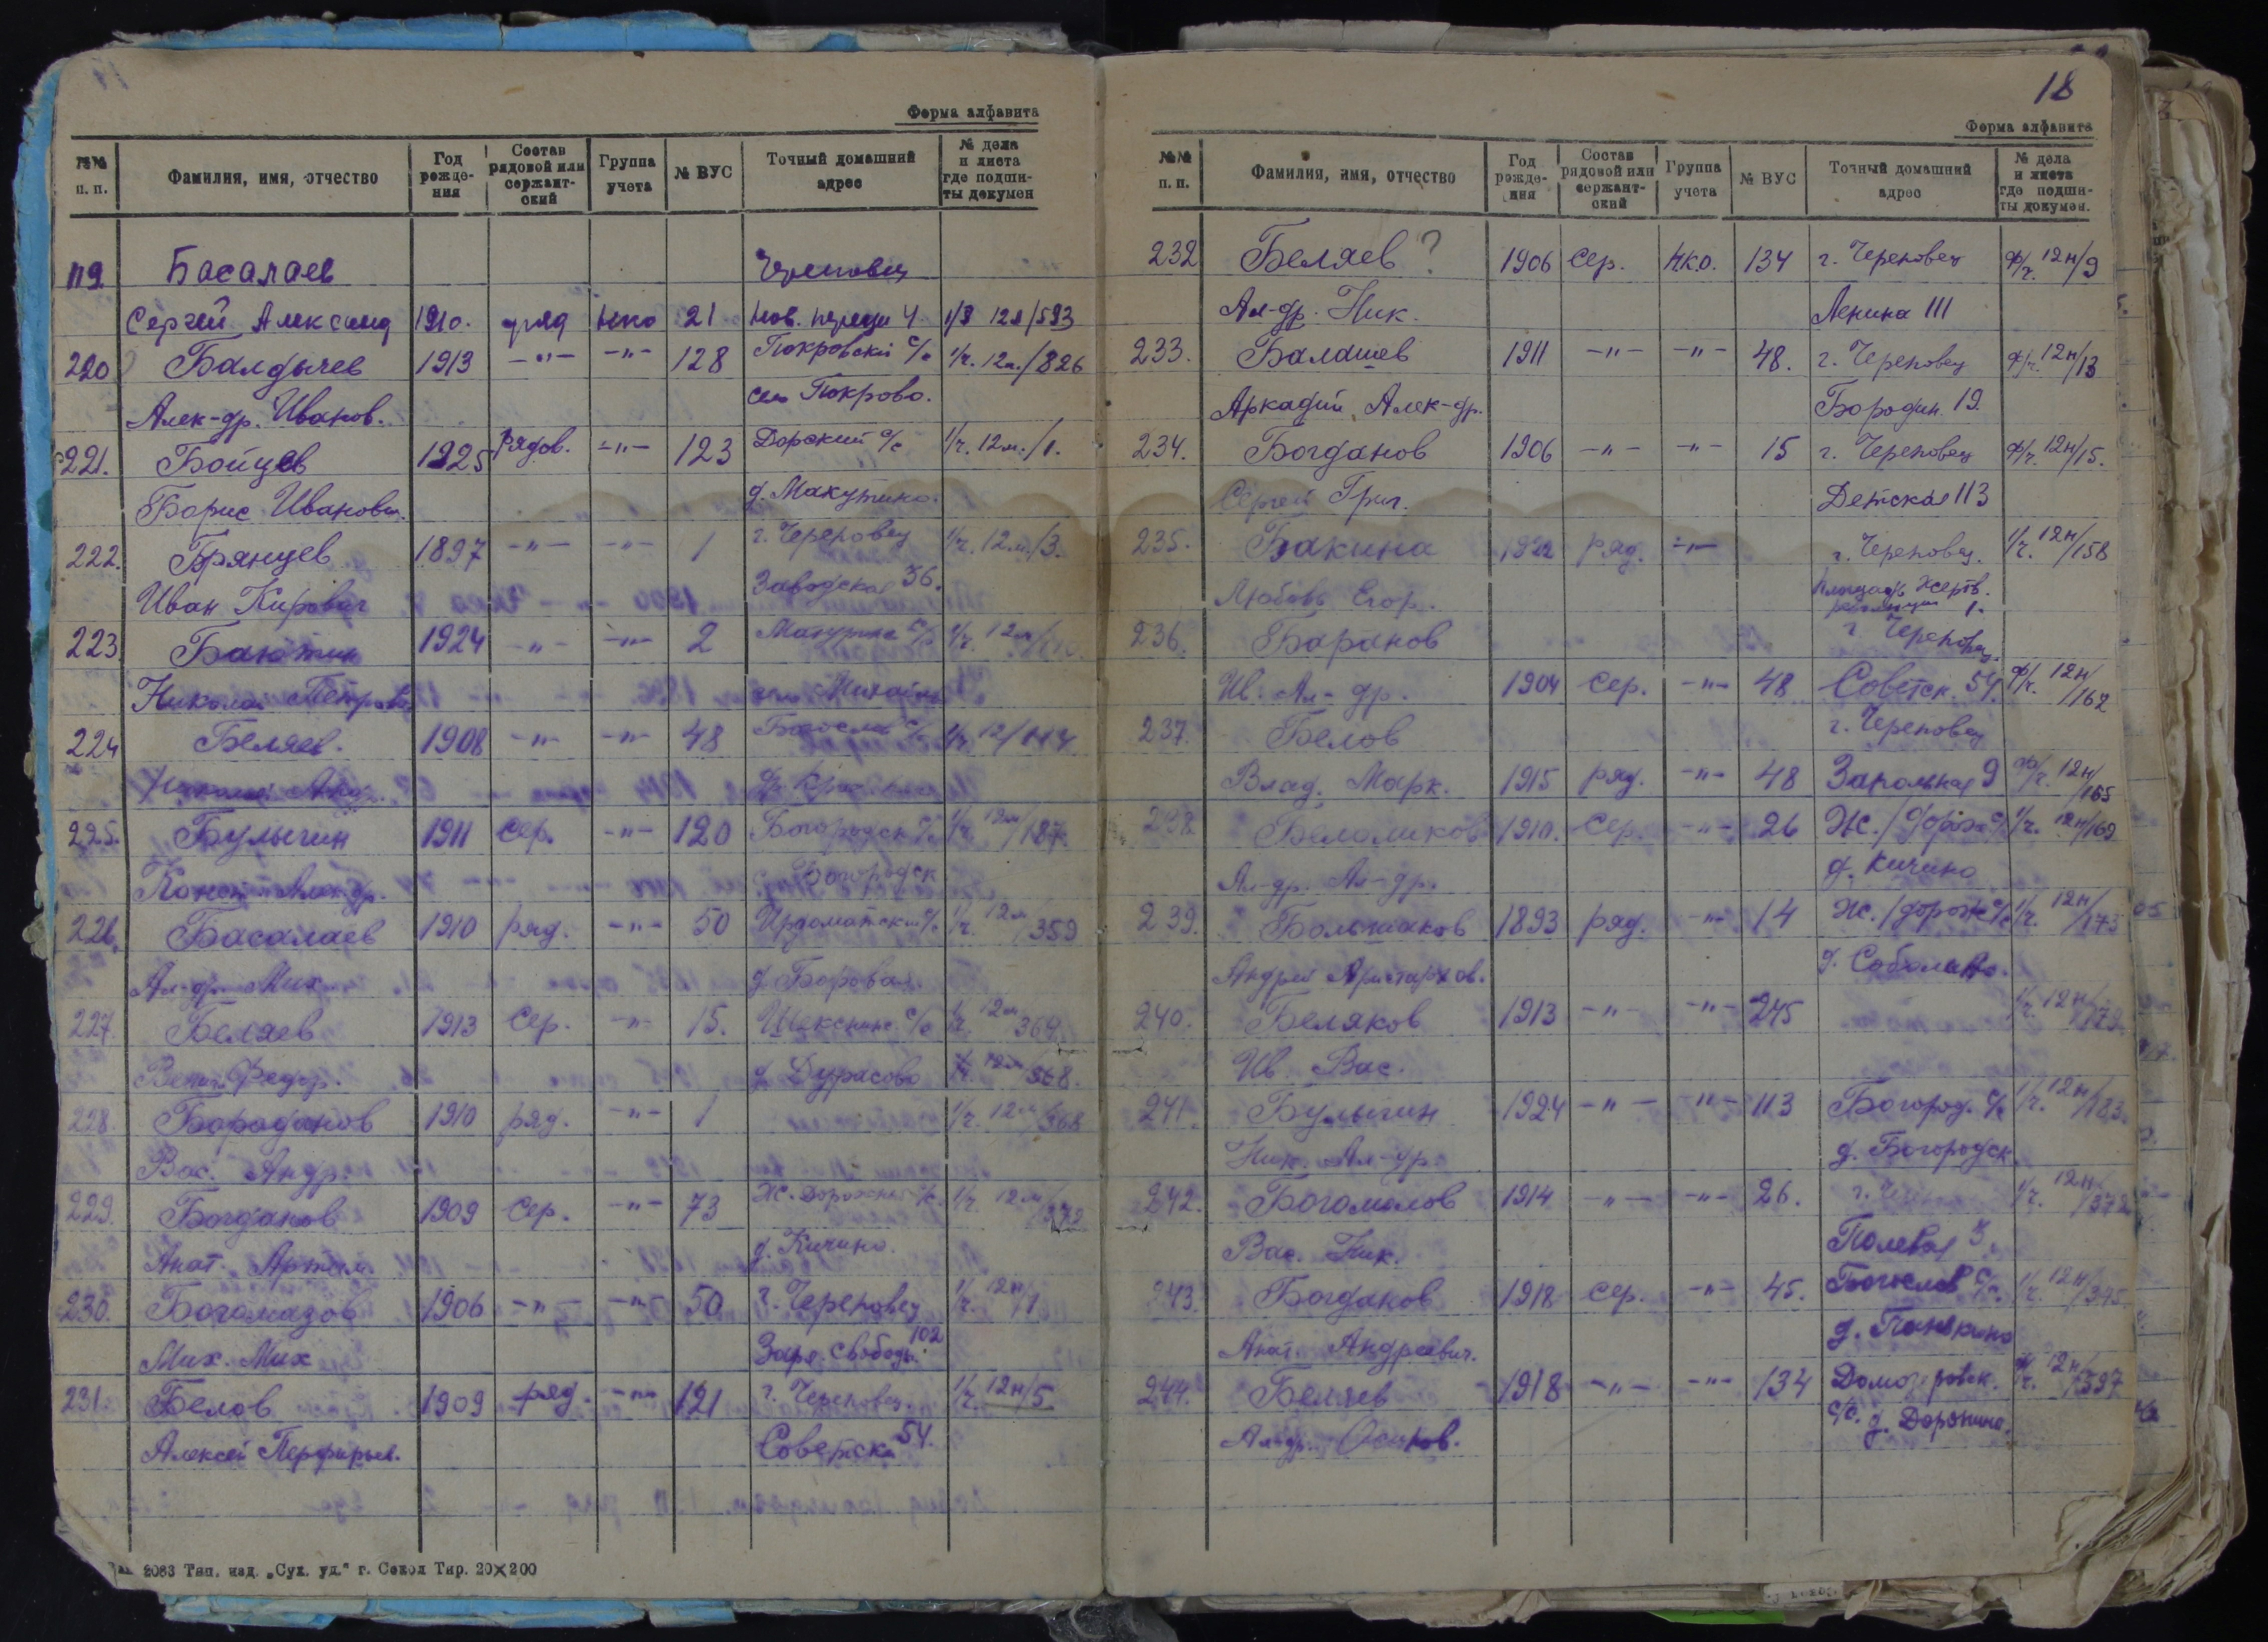 Форма алфавита
№№ п. п. Фамилия, имя, отчество Год рождения Состав рядовой или сержантский Группа учета № ВУС Точный домашний адрес № дела и листа где подшиты докумен
119 Басалаев Череповец
Сергей Александ 1910. ряд нко 21 1/3 12л/593
220 Балдычев 1913 -"- -"- 128 Покровский с/с 1/ч. 12л./826
Алек-др. Иванов. село Покрово.
221. Бойцев 1925 Рядов. -"- 123 Дорский с/с 1/ч. 12м./1.
Борис Иванович. д. Макутино.
222. Брянцев 1897 -"- -"- 1 г. Череповец 1/ч. 12м./3.
Иван Кирович Заводская 36.
223 1924 -"- -"- 2 1/ч. 12м/
Николай Петров
224 Беляев. 1908 -"- -"- 48 1/ч 12/
225. Булыгин 1911 сер. -"- 120 Богородск с/с 1/ч. 12м/187.
Конст-н Алек-др. Богородск
226. Басалаев 1910 ряд. -"- 50 Ирдоматский с/с 1/ч. 12м/359
Ал-др. Мих. д Боровая.
227. Беляев 1913 Сер. -"- 15. Шекснинс. с/с 1/ч. 12м/369.
Вениам. Федор. д. Дурасово 1/ч. 12м/368.
228. Бараданов 1910 ряд. -"- 1 1/ч. 12м/368
Вас. Андр.
229. Богданов 1909 Сер. -"- 73 Ж. Дорожный с/с. 1/ч. 12м/
Анат. Артем. д. Кичино.
230. Богомазов 1906 -"- -"- 50 г. Череповец 1/ч. 12н/1
Мих. Мих Заря Свободы 102
231. Белов 1909 ряд. -"- 121 г. Череповец. 1/ч. 12н/5
Алексей Перфирьев. Советская 54.
2083 Тип. изд. „Сух. уд.“ г. Сокол Тир. 20×200
18
Форма алфавита
№№ п. п. Фамилия, имя, отчество Год рождения Состав рядовой или сержантский Группа учета № ВУС Точный домашний адрес № дела и листа где подшиты докумен.
232 Беляев ? 1906 Сер. нко. 134 г. Череповец ф/ч. 12н/9
Ал-др. Ник. Ленина 111
233. Балашев 1911 -"- -"- 48. г. Череповец ф/ч. 12н/13
Аркадий Алек-др. Бородин. 19.
234. Богданов 1906 -"- -"- 15 г. Череповец ф/ч. 12н/15.
Сергей Григ. Детская 113
235. Бакина 1922 ряд. -"- г. Череповец. 1/ч. 12н/158
Любовь Егор. Площадь Жертв. революции 1.
236. Баранов г. Череповец.
Ив. Ал-др. 1904 Сер. -"- 48 Советск. 54. ф/ч. 12н/162
237. Белов г. Череповец
Влад. Марк. 1915 ряд. -"- 48 Запольная 9 ф/ч. 12н/165
238. 1910. Сер. -"- 26 Ж./дорож с/с 1/ч. 12н/169
Ал-др. Ал-др. д. Кичино
239. Большаков 1893 ряд. -"- 14 Ж./дорож с/с 1/ч. 12н/173
Андрей Аристархов. д. Соболино.
240. Беляков 1913 -"- -"- 245 1/ч. 12н/
Ив. Вас.
241. Булыгин 1924 -"- -"- 113 Богород. с/с 1/ч. 12н/183.
Ник. Ал-др. д. Богородск
242. Богомолов 1914 -"- -"- 26. 1/ч. 12н/372
Вас. Ник. Полевая 3.
243. Богданов 1918 сер. -"- 45. Богослов с/с. 1/ч. 12н/375
Анат. Андреевич.
244. Беляев 1918 -"- -"- 134 ф/ч. 12н/397
Ал-др. Осипов. с/с. д. Доронино.